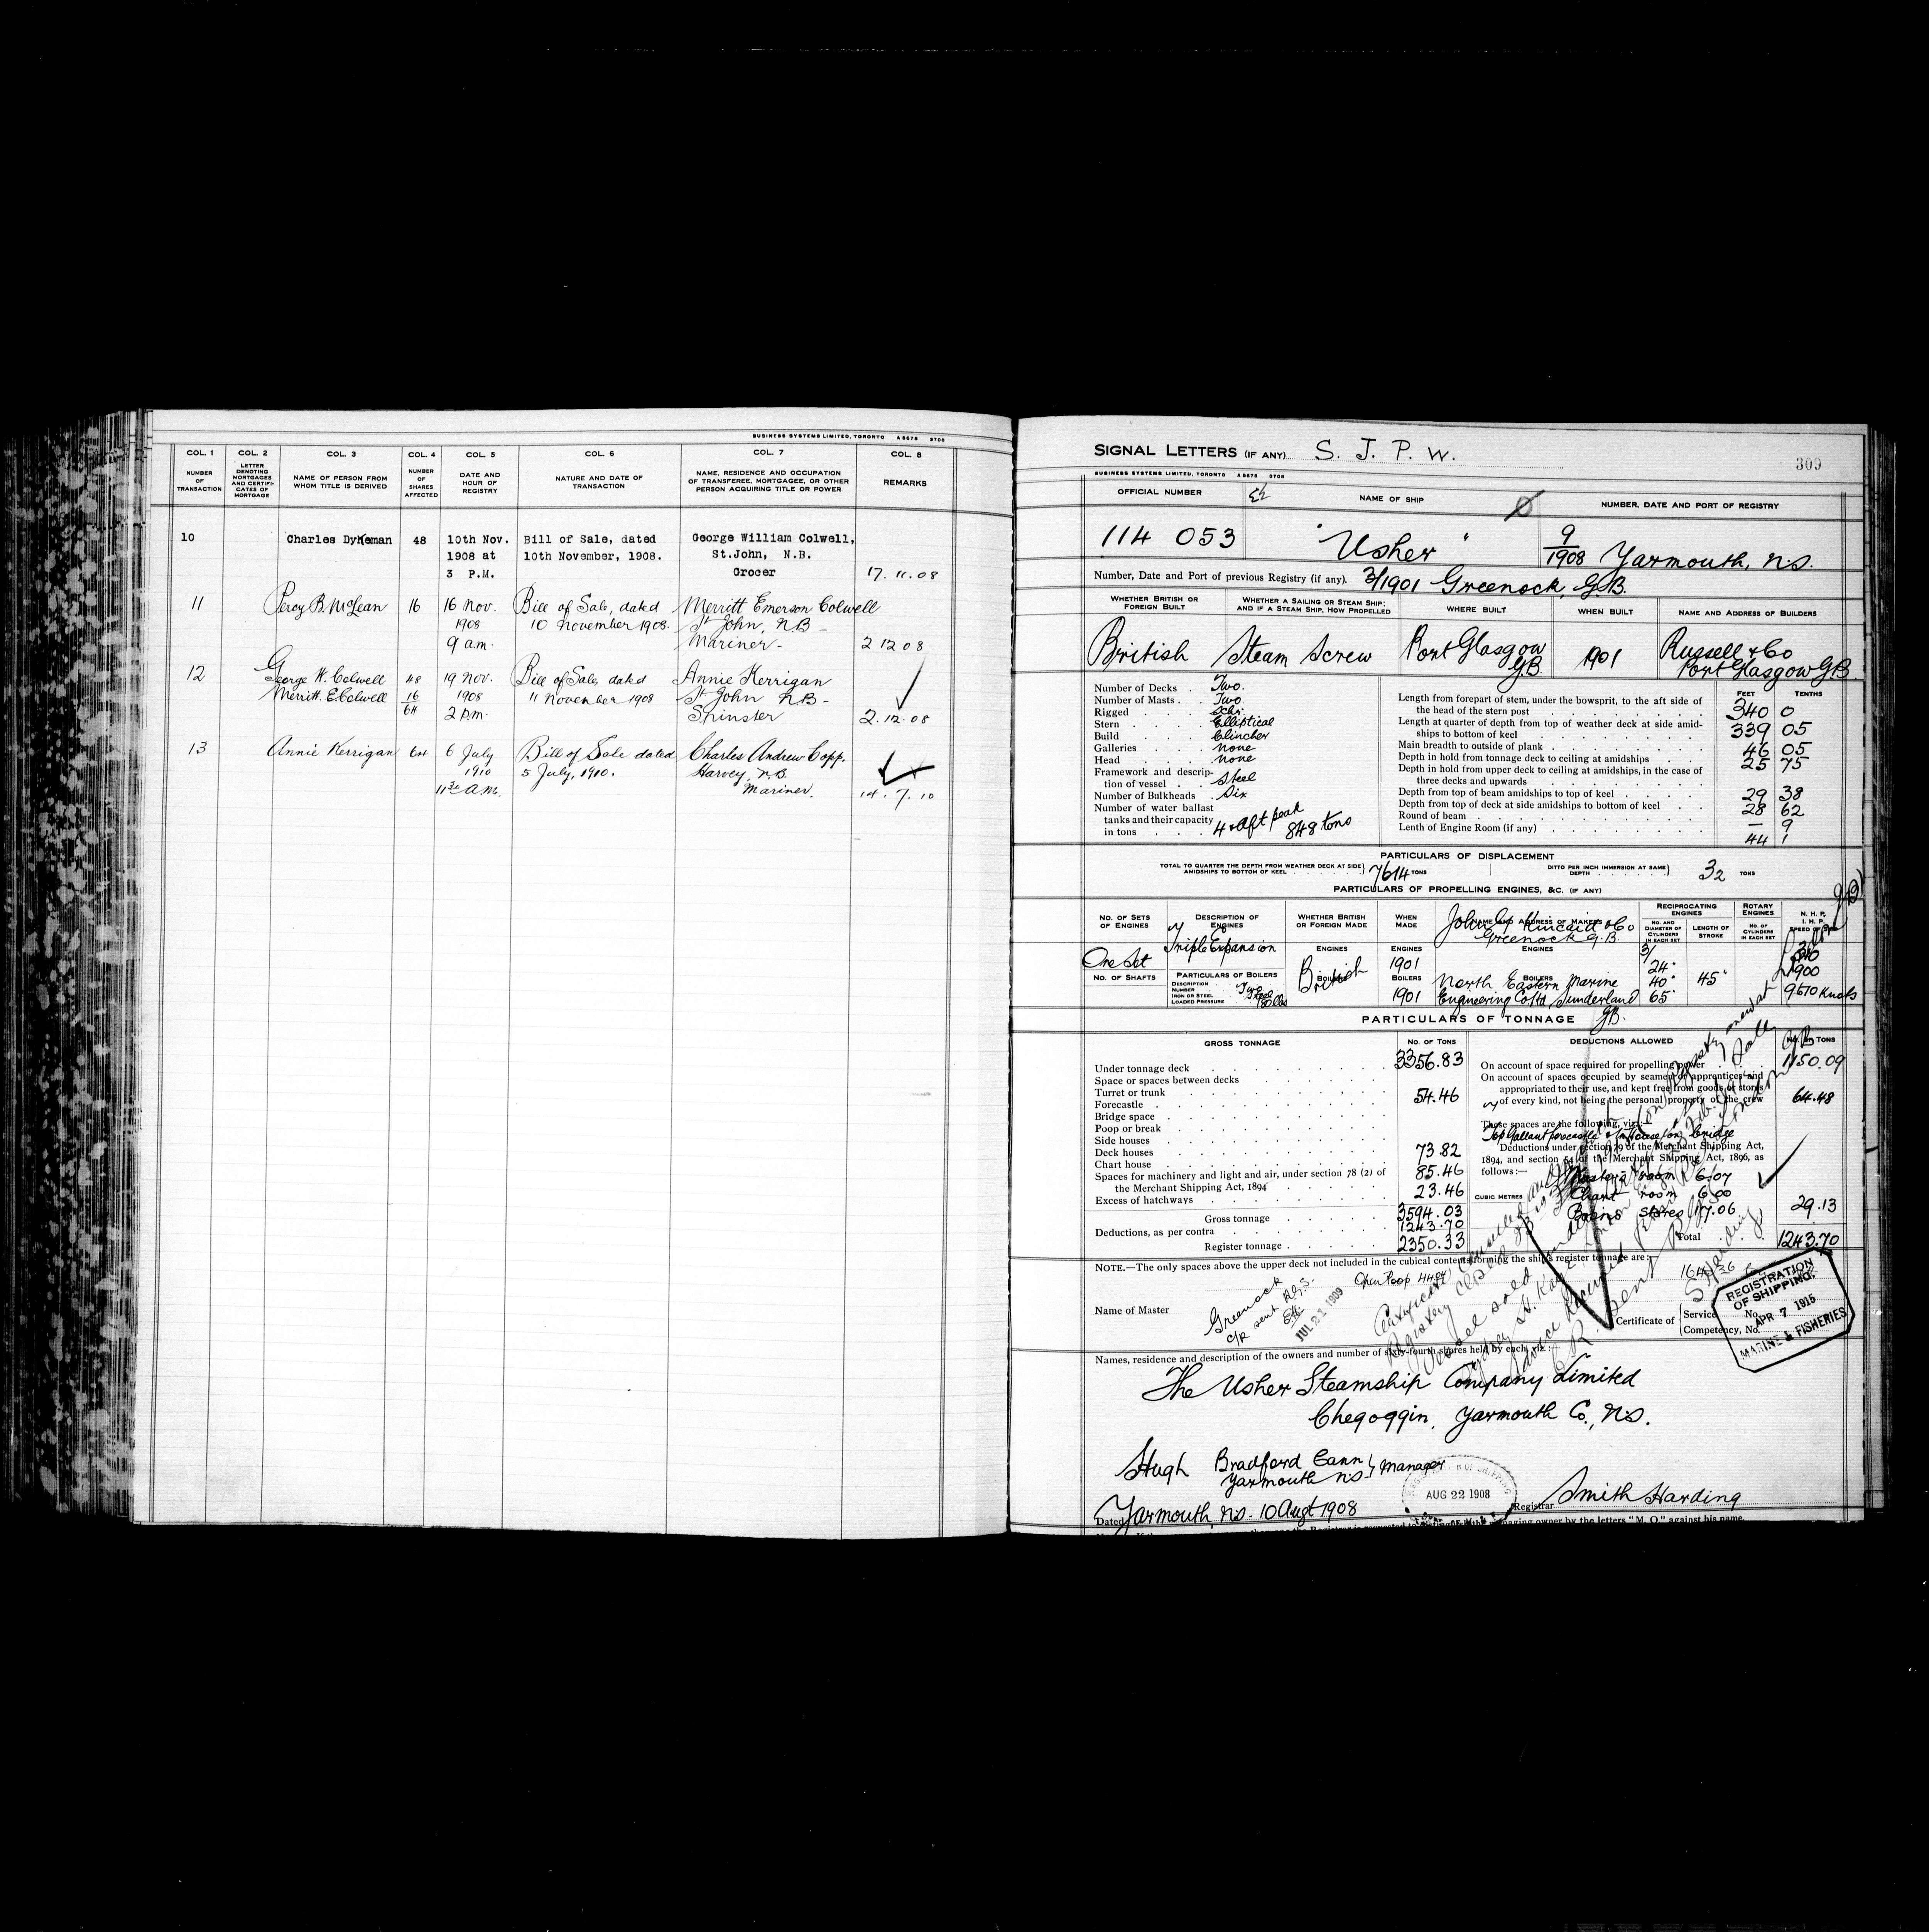 BUSINESS SYSTEMS LIMITED, TORONTO A 6675 3708
COL. 1 COL. 2 COL. 3 COL. 4 COL. 5 COL. 6 COL. 7 COL. 8
NUMBER OF TRANSACTION
LETTER DENOTING MORTGAGES AND CERTIFICATES OF MORTGAGE
NAME OF PERSON FROM WHOM TITLE IS DERIVED
NUMBER OF SHARES AFFECTED
DATE AND HOUR OF REGISTRY
NATURE AND DATE OF TRANSACTION
NAME, RESIDENCE AND OCCUPATION OF TRANSFEREE, MORTGAGEE, OR OTHER PERSON ACQUIRING TITLE OR POWER
REMARKS
10 Charles Dykeman 48 10th Nov. Bill of Sale, dated George William Colwell,
1908 at 10th November, 1908. St.John, N.B.
3 P.M. Grocer 17.11.08
11 Percy B. McLean 16 16 Nov. Bill of Sale, dated Merritt Emerson Colwell
1908 10 November 1908. St John, NB-
9 a.m. Mariner- 2 12 08
12 George W. Colwell 48 19 Nov. Bill of Sale, dated Annie Kerrigan
Merritt. E. Colwell 16 1908 11 November 1908 St John NB-
64 2 p.m. Spinster 2.12.08
13 Annie Kerrigan 64 6 July Bill of Sale dated Charles Andrew Copp.
1910 5 July, 1910. Harvey, N.B.
11 30 a.m. Mariner. 14.7.10
SIGNAL LETTERS (IF ANY) S. J. P. W.
309
BUSINESS SYSTEMS LIMITED, TORONTO A 6675 3708
OFFICIAL NUMBER NAME OF SHIP NUMBER, DATE AND PORT OF REGISTRY
114 053 "Usher" 9/1908 Yarmouth, N.S.
Number, Date and Port of previous Registry (if any). 3/1901 Greenock, G.B.
WHETHER BRITISH OR FOREIGN BUILT
WHETHER A SAILING OR STEAM SHIP; AND IF A STEAM SHIP, HOW PROPELLED
WHERE BUILT
WHEN BUILT
NAME AND ADDRESS OF BUILDERS
British Steam Screw Port Glasgow G.B. 1901 Russell & Co
Port Glasgow G.B.
Number of Decks . Two.
Number of Masts . . Two
Rigged . . . . Schr.
Stern . . . . Elliptical
Build . . . . Clincher
Galleries . . . none
Head . . . . none
Framework and description of vessel . . Steel
Number of Bulkheads . Six
Number of water ballast tanks and their capacity in tons . . . 4 & Aft peak 848 tons
FEET TENTHS
Length from forepart of stem, under the bowsprit, to the aft side of the head of the stern post 340 0
Length at quarter of depth from top of weather deck at side amidships to bottom of keel 339 05
Main breadth to outside of plank 46 05
Depth in hold from tonnage deck to ceiling at amidships 25 75
Depth in hold from upper deck to ceiling at amidships, in the case of three decks and upwards
Depth from top of beam amidships to top of keel 29 38
Depth from top of deck at side amidships to bottom of keel 28 62
Round of beam — 9
Lenth of Engine Room (if any) 44 1
PARTICULARS OF DISPLACEMENT
TOTAL TO QUARTER THE DEPTH FROM WEATHER DECK AT SIDE AMIDSHIPS TO BOTTOM OF KEEL 7614 TONS
DITTO PER INCH IMMERSION AT SAME DEPTH 32 TONS
PARTICULARS OF PROPELLING ENGINES, &C. (IF ANY)
NO. OF SETS OF ENGINES
DESCRIPTION OF ENGINES
WHETHER BRITISH OR FOREIGN MADE
WHEN MADE
NAME AND ADDRESS OF MAKERS
RECIPROCATING ENGINES
NO. AND DIAMETER OF CYLINDERS IN EACH SET
LENGTH OF STROKE
ROTARY ENGINES
NO. OF CYLINDERS IN EACH SET
N. H. P. I. H. P.
John G. Kincaid & Co
Greenock G.B.
Triple Expansion
One Set
ENGINES ENGINES ENGINES
British 1901
NO. OF SHAFTS
PARTICULARS OF BOILERS
DESCRIPTION
NUMBER Two
IRON OR STEEL Steel
LOADED PRESSURE 180 lbs
BOILERS BOILERS BOILERS
1901 North Eastern Marine
Engineering Co Ltd, Sunderland G.B.
3/ 24" 40" 65" 45"
1900
PARTICULARS OF TONNAGE
GROSS TONNAGE NO. OF TONS
Under tonnage deck 3356.83
Space or spaces between decks
Turret or trunk 54.46
Forecastle
Bridge space
Poop or break
Side houses
Deck houses 73.82
Chart house
Spaces for machinery and light and air, under section 78 (2) of the Merchant Shipping Act, 1894 85.46
Excess of hatchways 23.46
Gross tonnage 3594.03
Deductions, as per contra 1243.70
Register tonnage 2350.33
DEDUCTIONS ALLOWED NO. OF TONS
On account of space required for propelling power 1150.09
On account of spaces occupied by seamen or apprentices and appropriated to their use, and kept free from goods or stores of every kind, not being the personal property of the crew 64.48
These spaces are the following, viz:—
Top Gallant forecastle & in House on bridge
Deductions under section 79 of the Merchant Shipping Act, 1894, and section 54 of the Merchant Shipping Act, 1896, as follows:—
CUBIC METRES
Master's room 6.07
Chart room 6.00
Boatns Stores 17.06 29.13
Total 1243.70
NOTE.—The only spaces above the upper deck not included in the cubical contents forming the ship's register tonnage are:
Open Poop
Name of Master
Greenock
C/R sent R.G.S.
JUL 21 1909
Certificate of Service No.
Competency, No.
REGISTRATION OF SHIPPING.
APR 7 1915
MARINE & FISHERIES
Names, residence and description of the owners and number of sixty-fourth shares held by each, viz:—
The Usher Steamship Company Limited
Chegoggin, Yarmouth Co., N.S.
Hugh Bradford Cann Manager
Yarmouth N.S.
AUG 22 1908
Dated Yarmouth, N.S. 10 Augt 1908 Registrar Smith Harding
managing owner by the letters "M. O." against his name.